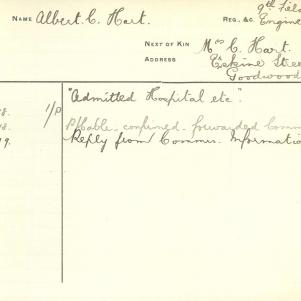 NAME Albert C. Hart. REG., &C. 9th Fiel
Engine
NEXT OF KIN Mrs C. Hart.
ADDRESS Erskine Stree
Goodwood
"Admitted Hospital etc".
8. 1/P
8. P/Cable confirmed forwarded Comm
19. Reply from Commn. Informatio